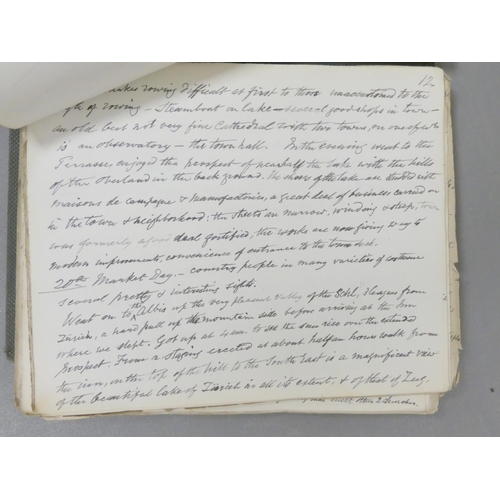 12
makes rowing difficult at first to those unaccustomed to the
style of rowing – Steamboat on lake – several good shops in town –
an old but not very fine Cathedral with two towers, on one of which
is an observatory – the town hall. In the evening went to the
Terrasse enjoyed the prospect of near half the lake with the hills
of the Oberland in the back ground. The shores of the lake are studded with
maisons de campagne & manufactories, a great deal of business carried on
in the town & neighborhood; the streets are narrow, winding & steep, town
was formerly a good deal fortified; the works are now giving way to
modern improvements, convenience of entrance to the town &c.
20th Market Day – country people in many varieties of costume
several pretty & interesting sights.
Went on to the Albis up the very pleasant valley of the Sihl, 3 leagues from
Zurich, a hard pull up the mountain side before arriving at the Inn
where we slept. Got up at 4 a.m. to see the sun rise over the extended
prospect. From a staging erected at about half an hours walk from
the inn, on the top of the hill to the South East is a magnificent view
of the beautiful lake of Zurich in all its extent, & of that of Zug.